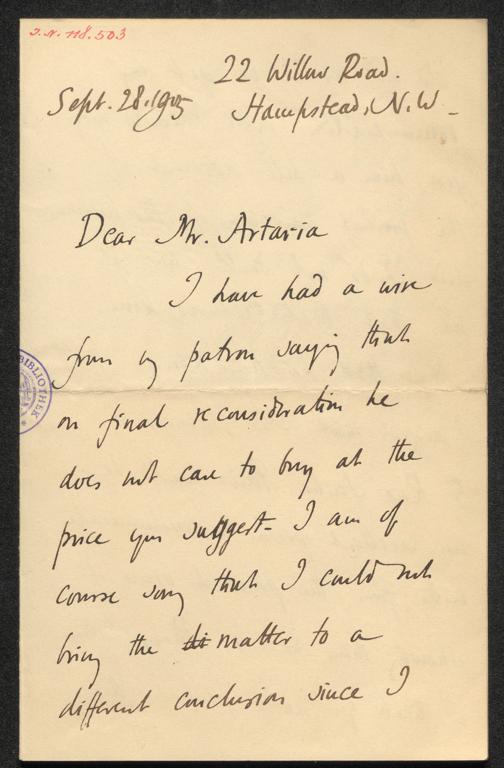 I.N. 118.503
22 Willow Road.
Sept. 28. 1905 Hampstead, N.W.
Dear Mr. Artaria
I have had a wire
from my patron saying that
on final reconsideration he
does not care to buy at the
price you suggest. I am of
course sorry that I could not
bring the matter to a
different conclusion since I
BIBLIOTHEK